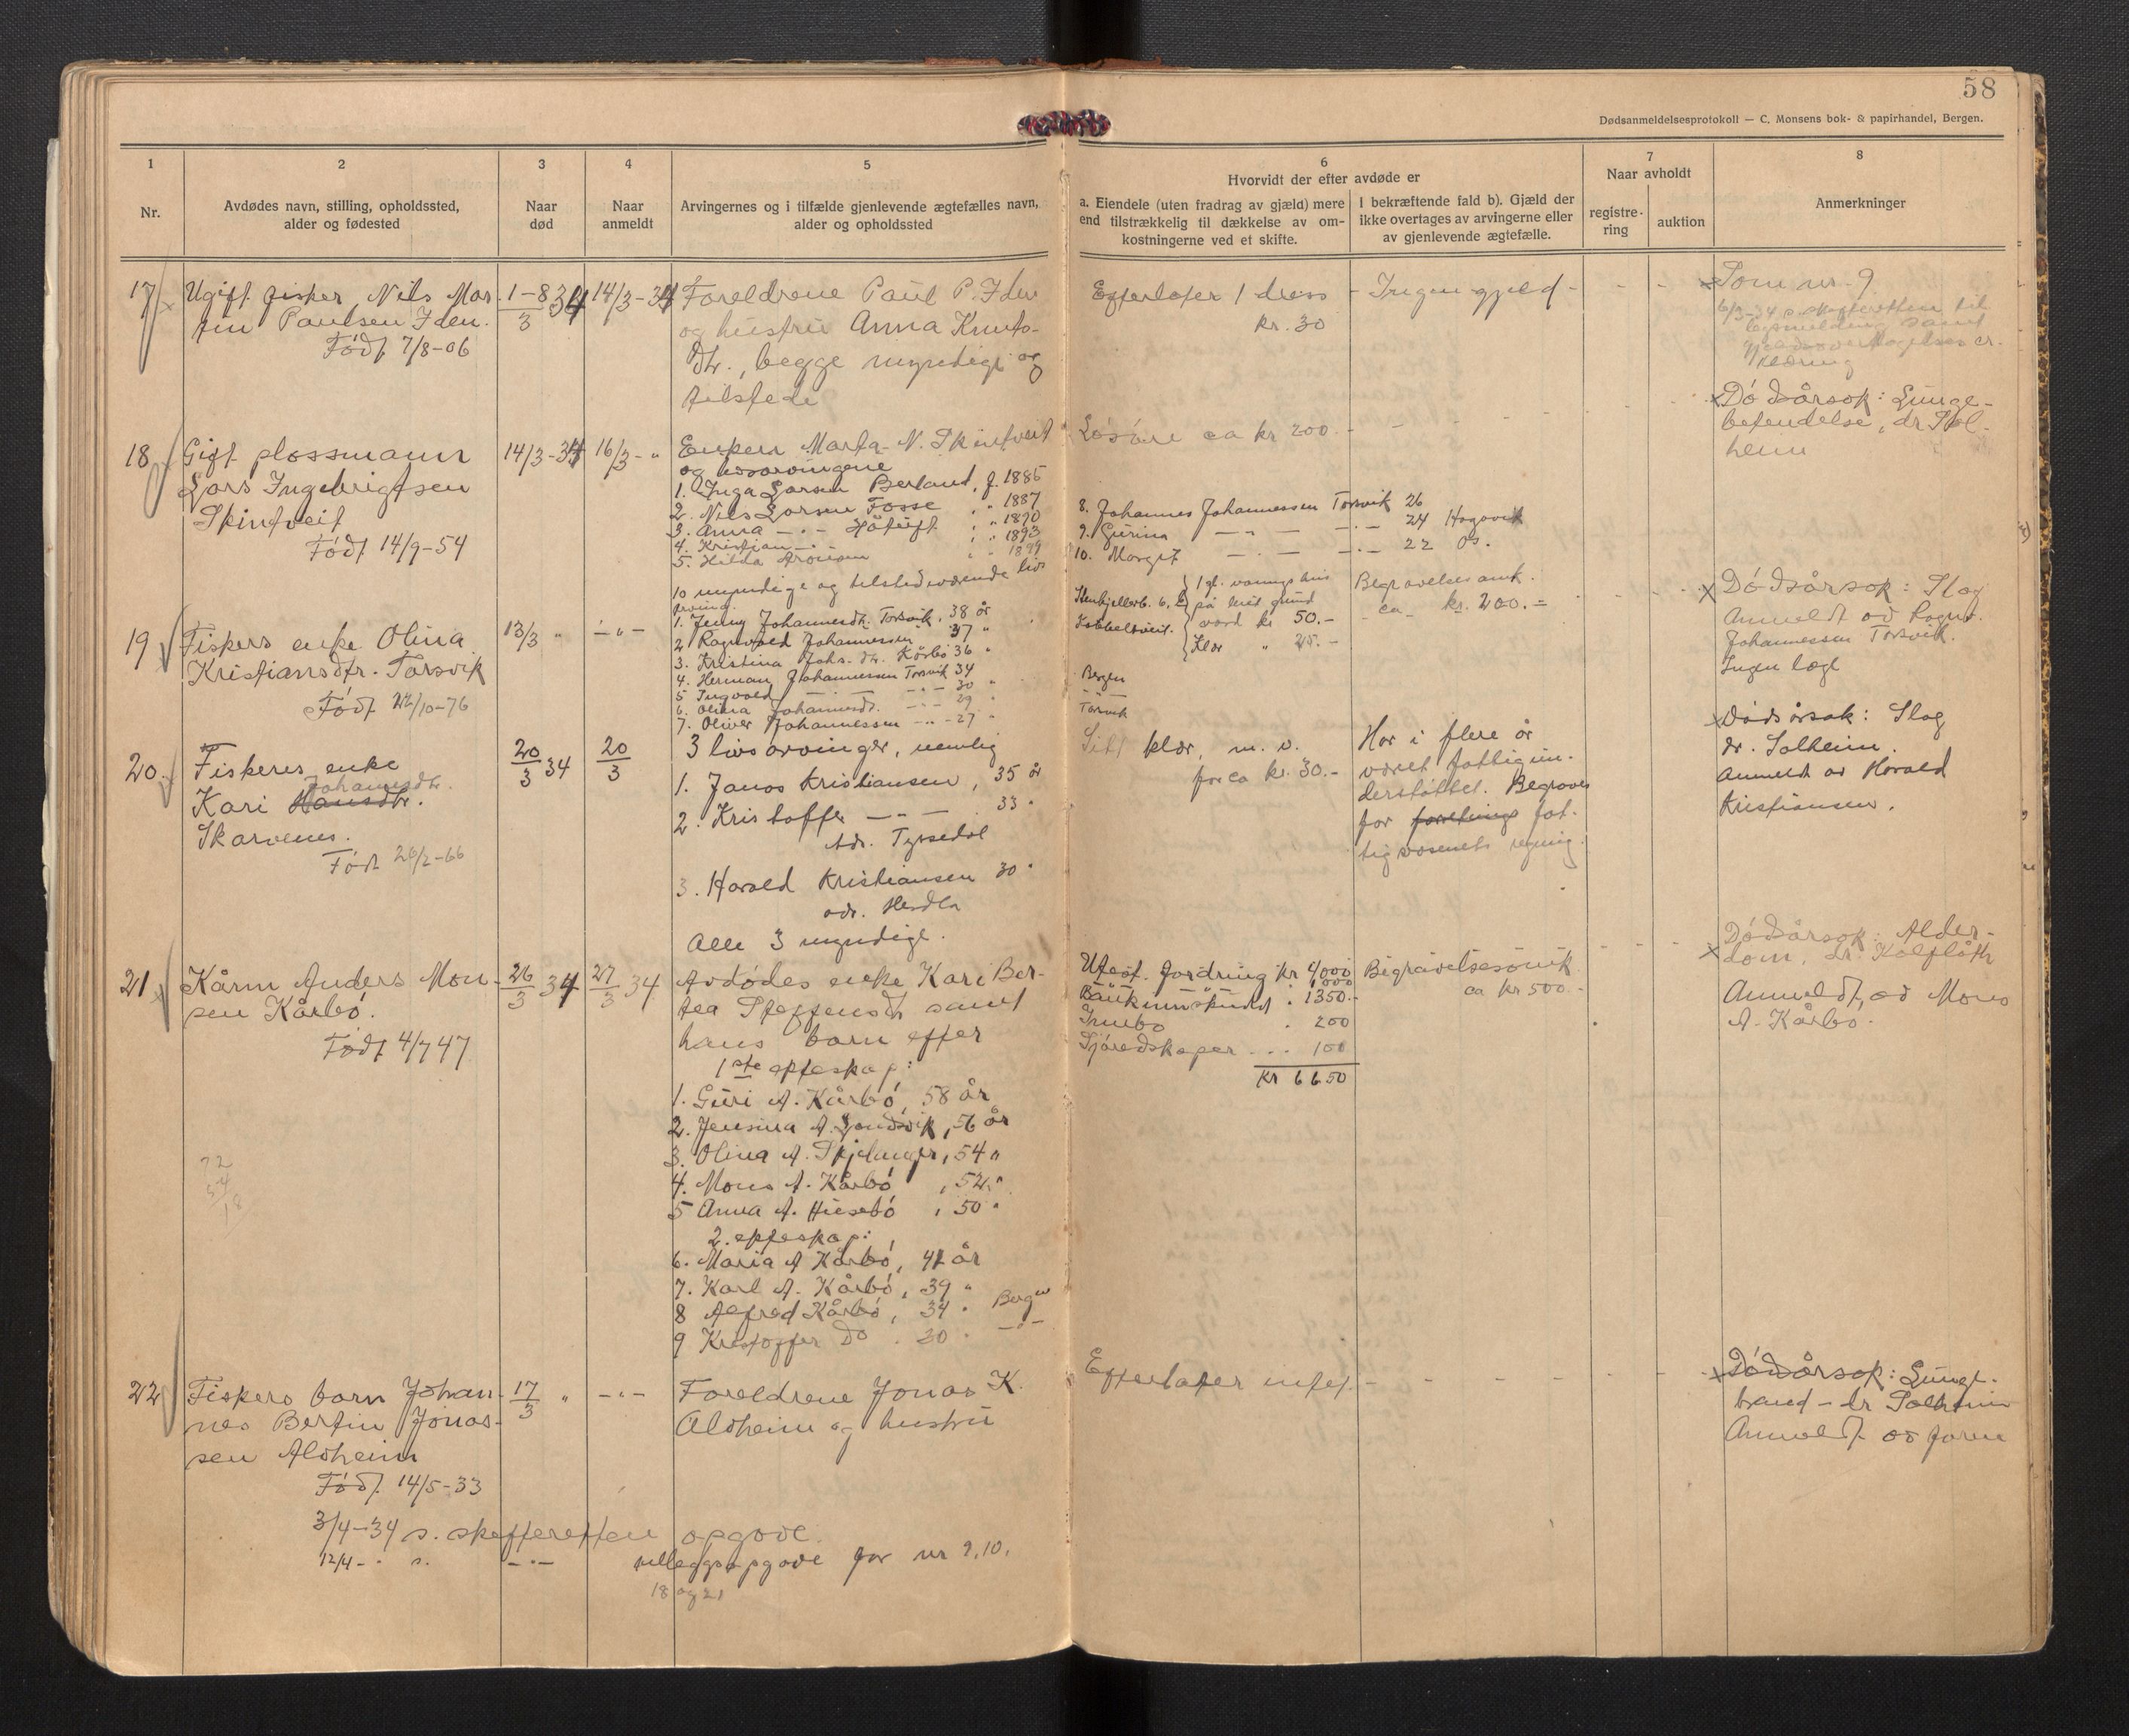 58
Dødsanmeldelsesprotokoll — C. Monsens bok- & papirhandel, Bergen.
1
Nr.
2
Avdødes navn, stilling, opholdssted,
alder og fødested
3
Naar
død
4
Naar
anmeldt
5
Arvingernes og i tilfælde gjenlevende ægtefælles navn,
alder og opholdssted
6
Hvorvidt der efter avdøde er
a. Eiendele (uten fradrag av gjæld) mere
end tilstrækkelig til dækkelse av om-
kostningerne ved et skifte.
I bekræftende fald b). Gjæld der
ikke overtages av arvingerne eller
av gjenlevende ægtefælle.
7
Naar avholdt
registre-
ring
auktion
8
Anmerkninger
17
Ugift fisker Nils Mar-
tin Paulsen Iden.
Født 7/8-06
1-8/3 34
14/3-34
Foreldrene Paul P. Iden
og hustru Anna Knuts-
dtr., begge myndige og
tilstede
Efterlater 1 dress
kr. 30
- Ingen gjeld -
Som nr. 9
6/3-34 s. skifteretten til
samt
gjeldsovertagelses er-
klæring
Dødsårsak: Lunge-
betendelse, dr. Sol-
heim
18
Gift plassmann
Lars Ingebrigtsen
Skintveit
Født 14/9-54
14/3-34
16/3- "
Enken Marta N. Skintveit
og livsarvingene
1. Inga Larsen Berland, f. 1885
2. Nils Larsen Fosse " " 1887
3. Anna -"- Høtuft " " 1890
4. Kristian -"- " " 1893
5. Hilda Aronsen " " 1899
Løsøre ca kr 200.-
19
Fiskers enke Olina
Kristiansdtr. Torsvik
Født 22/10-76
13/3 "
-"-
10 myndige og tilstedeværende livs
arving.
1. Jenny Johannesdtr. Torsvik, 38 år
2 Ragnvald Johannessen 37 "
3. Kristina Johs. dtr. Kårbø 36 "
4. Herman Johannessen Torsvik 34
5 Ingvald -"- 30 "
6. Olina Johannesdtr. -"- 29 "
7. Oliver Johannessen -"- 27 "
8. Johannes Johannessen Torsvik 26
9. Gurina -"- -"- 24 Hagavik
10. Margit -"- -"- 22 Os.
Bergen
-"-
Torsvik
1 gl. vaaningshus
på leiet grund
værd kr 50.-
Klær " 25.-
Begravelsesomk.
ca kr. 200.-
Dødsårsak: Slag
Anmeldt av Ragnv.
Johannessen Torsvik.
Ingen læge
20
Fiskeres enke
Johannesdtr.
Kari Hansdtr.
Skarvenes.
Født 26/2-66
20/3 34
20/3
3 livsarvinger, nemlig
1. Janos Kristiansen, 35 år
2. Kristoffer -"- 33 "
Adr. Tyssedal
3. Harald Kristiansen 30 "
adr. Herdla
Alle 3 myndige.
Litt klær, m. v.
for ca kr. 30.-
Har i flere år
været fattigun-
derstøttet. Begraves
for forretning fat-
tigvæsenets regning.
Dødsårsak: Slag
dr. Solheim.
Anmeldt av Harald
Kristiansen.
21
Kårm Anders Mon-
sen Kårbø.
Født 4/7 47
26/3 34
27/3 34
Avdødes enke Kari Ber-
tea Steffensdtr samt
hans barn efter
1ste ekteskap:
1. Guri A. Kårbø, 58 år
2. Jensina A. Landsvik, 56 år
3. Olina A. Skjelanger, 54 "
4. Mons A. Kårbø, 52 "
5 Anna A. Husebø, 50 "
2. ekteskap:
6. Maria A Kårbø, 41 år
7. Karl A. Kårbø, 39 "
8 Alfred Kårbø, 34 " Bergen
9 Kristoffer Do . 30 " -"-
Utest. fordring kr 4000
-"- 1000
Bankinnskudd " 1350.-
Innbo " 200
Sjøredskaper ... 100
kr 6650
Begravelsesomk.
ca kr 500.-
Dødsårsak: Alder-
dom, dr. Kalflåth
Anmeldt av Mons
A. Kårbø.
72
54
18
22
Fiskers barn Johan-
nes Bertin Jonas-
sen Aldheim
Født 14/5-33
17/3 "
-"-
Foreldrene Jonas K.
Aldheim og hustru
Efterlater intet.
Dødsårsak: Lunge-
brand - dr Solheim
Anmeldt av faren
3/4-34 s. skifteretten opgave.
12/4- " s. -"- tilleggsopgave for nr 9, 10,
18 og 21